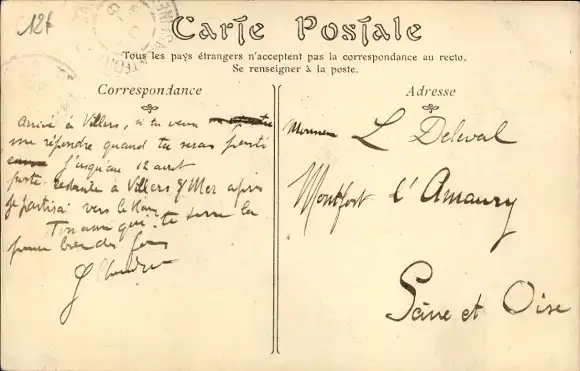 12f
Carte Postale
Tous les pays étrangers n'acceptent pas la correspondance au recto.
Se renseigner à la poste.
Correspondance
Adresse
Arrivé à Villers, si tu veux
me répondre quand tu seras
jusqu'au 12 avril
poste restante à Villers s/ Mer après
je partirai vers le
Ton ami qui te serre la
Monsieur L Deleval
Montfort l'Amaury
Seine et Oise